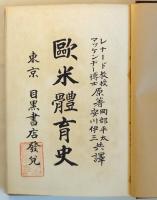 レナード教授
マッケンヂー博士
原著
岡部平太
安川伊三
共譯
歐米體育史
東京 目黒書店發兌